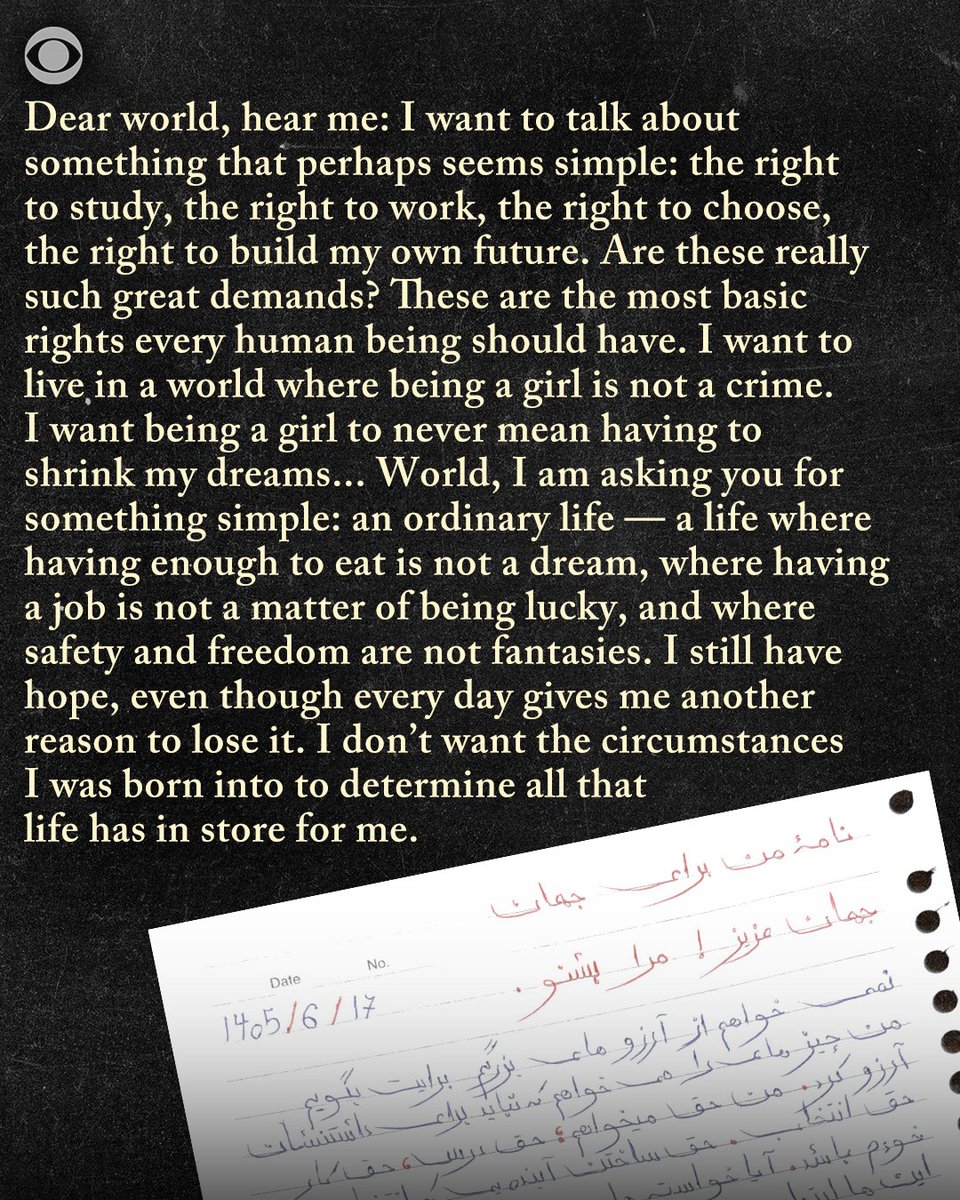 Dear world, hear me: I want to talk about
something that perhaps seems simple: the right
to study, the right to work, the right to choose,
the right to build my own future. Are these really
such great demands? These are the most basic
rights every human being should have. I want to
live in a world where being a girl is not a crime.
I want being a girl to never mean having to
shrink my dreams... World, I am asking you for
something simple: an ordinary life — a life where
having enough to eat is not a dream, where having
a job is not a matter of being lucky, and where
safety and freedom are not fantasies. I still have
hope, even though every day gives me another
reason to lose it. I don’t want the circumstances
I was born into to determine all that
life has in store for me.
نامهٔ من برای جهان
جهان عزیز! مرا بشنو.
Date No.
1405/6/17
نمی خواهم از آرزو های بزرگم برایت بگویم
من چیز های را می خواهم که نباید برای داشتنشان
آرزو کرد. من حق میخواهم؛ حق درس، حق کار
حق انتخاب. حق ساختن آینده
خودم باشد. آیا خواسته
این ها